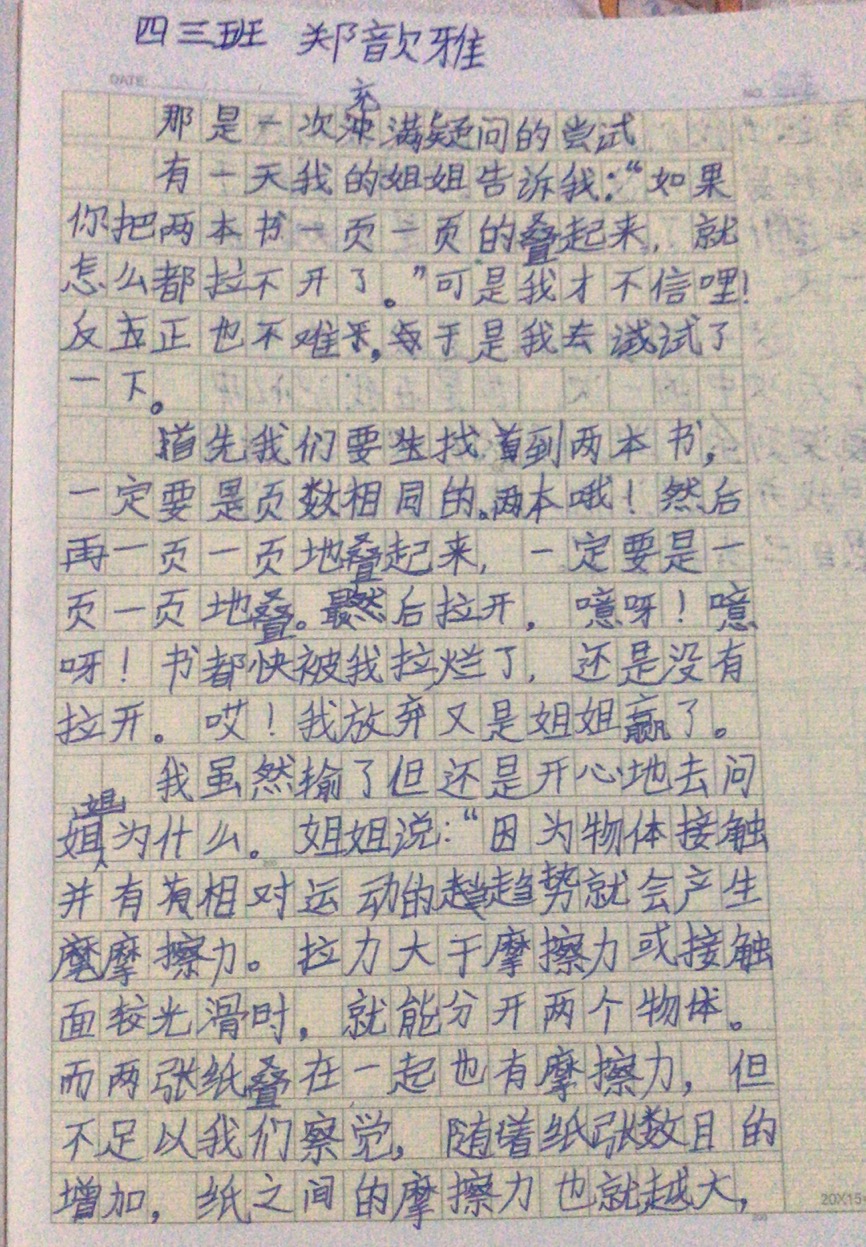 四三班 郑歆雅
DATE
NO
充
那是一次冲满疑问的尝试
有一天我的姐姐告诉我:“如果
你把两本书一页一页的叠起来,就
怎么都拉不开了。”可是我才不信哩!
反正也不难,于是我去试试了
一下。
首先我们要找到两本书,
一定要是页数相同的两本哦!然后
再一页一页地叠起来,一定要是一
页一页地叠。最然后拉开,噫呀!噫
呀!书都快被我拉烂了,还是没有
拉开。哎!我放弃又是姐姐赢了。
我虽然输了但还是开心地去问
姐
姐为什么。姐姐说:“因为物体接触
并有相对运动的趋势就会产生
摩擦力。拉力大于摩擦力或接触
面较光滑时,就能分开两个物体。
而两张纸叠在一起也有摩擦力,但
不足以我们察觉,随着纸张数目的
增加,纸之间的摩擦力也就越大,